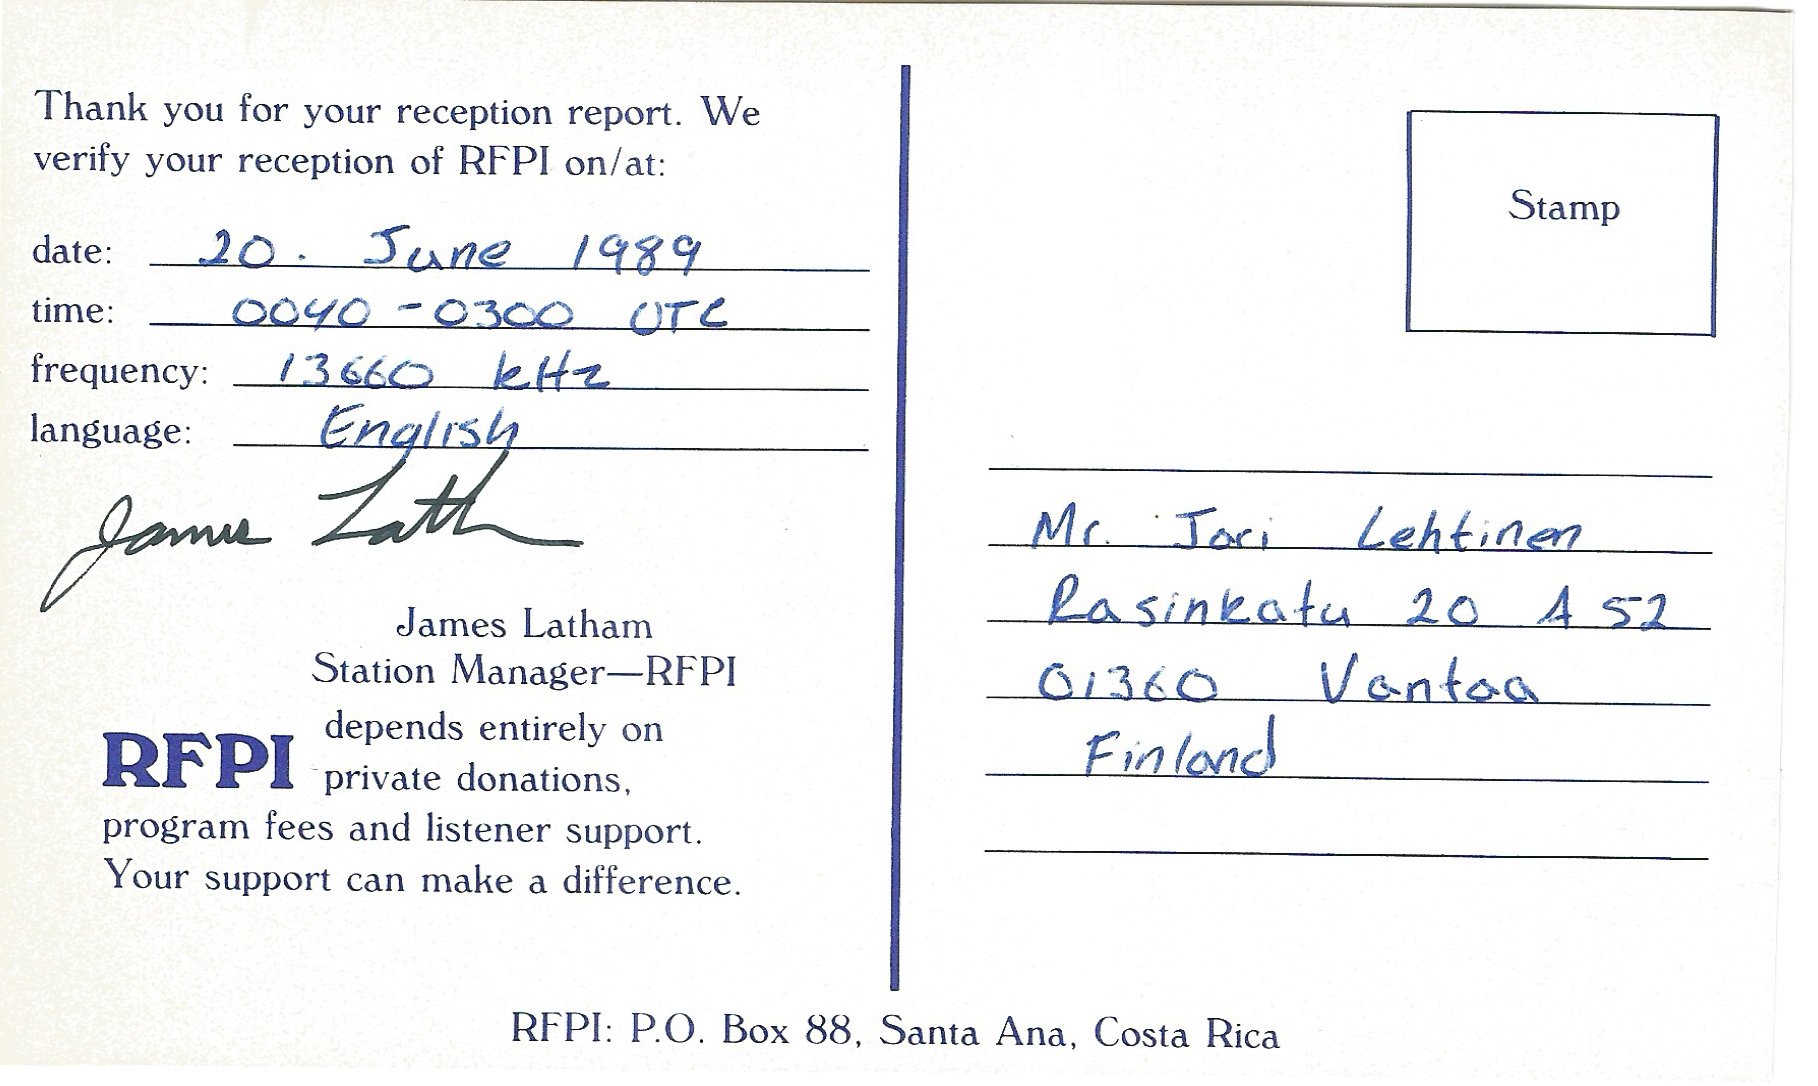 Thank you for your reception report. We
verify your reception of RFPI on/at:
date: 20. June 1989
time: 0040-0300 UTC
frequency: 13660 kHz
language: English
James Lath
James Latham
Station Manager—RFPI
RFPI depends entirely on
private donations,
program fees and listener support.
Your support can make a difference.
Stamp
Mr. Jori Lehtinen
Rasinkatu 20 A 52
01360 Vantaa
Finland
RFPI: P.O. Box 88, Santa Ana, Costa Rica